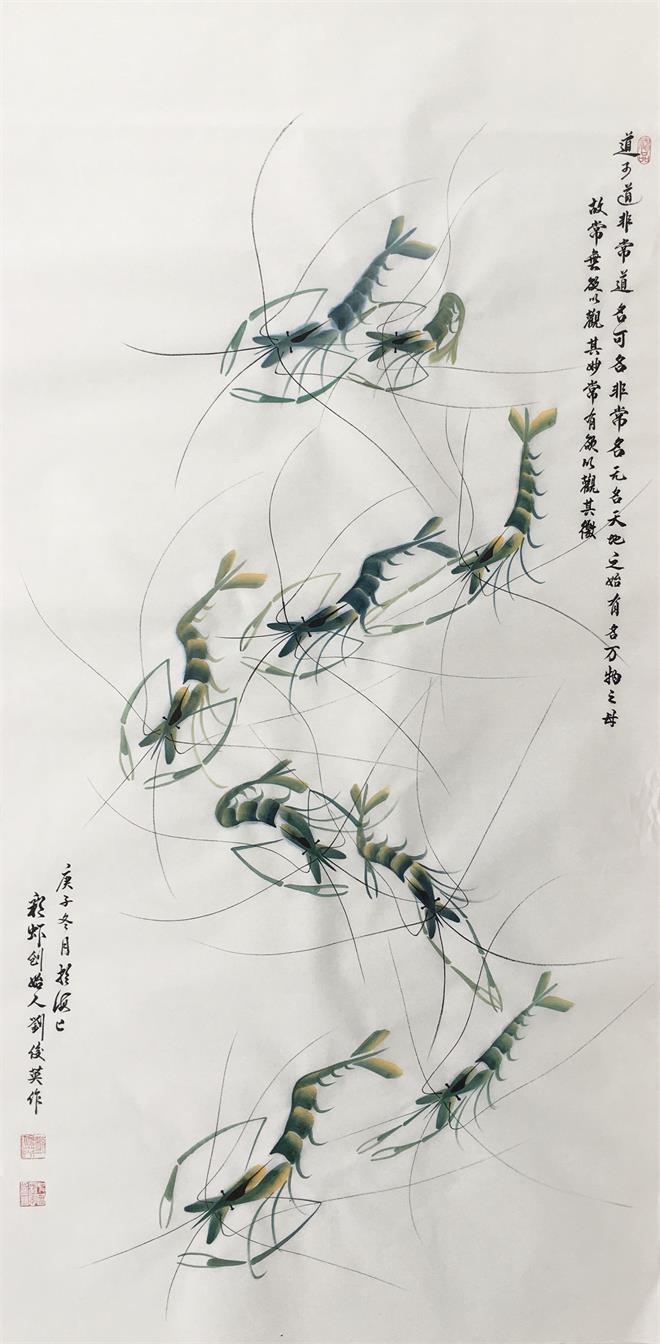 道可道非常道名可名非常名无名天地之始有名万物之母
故常無欲以觀其妙常有欲以觀其徼
庚子冬月於海上
彩虾创始人劉俊英作